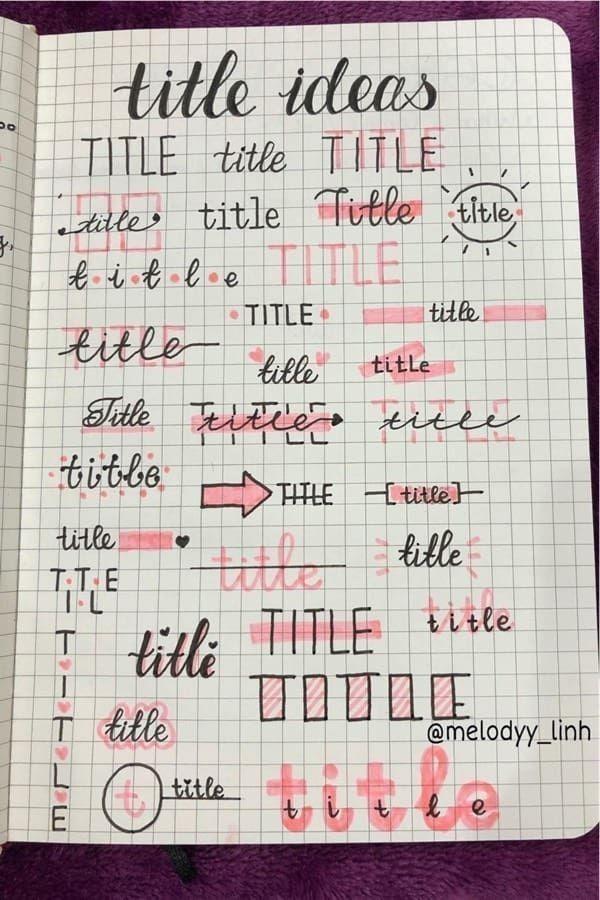 title ideas
TITLE title TITLE
title title Title title
t i t l e TITLE
TITLE title
title title title
Title title title
title TITLE title
title title title
TITLE
TITLE title
T I T L E title TITLE
title
t title t i t l e
@melodyy_linh